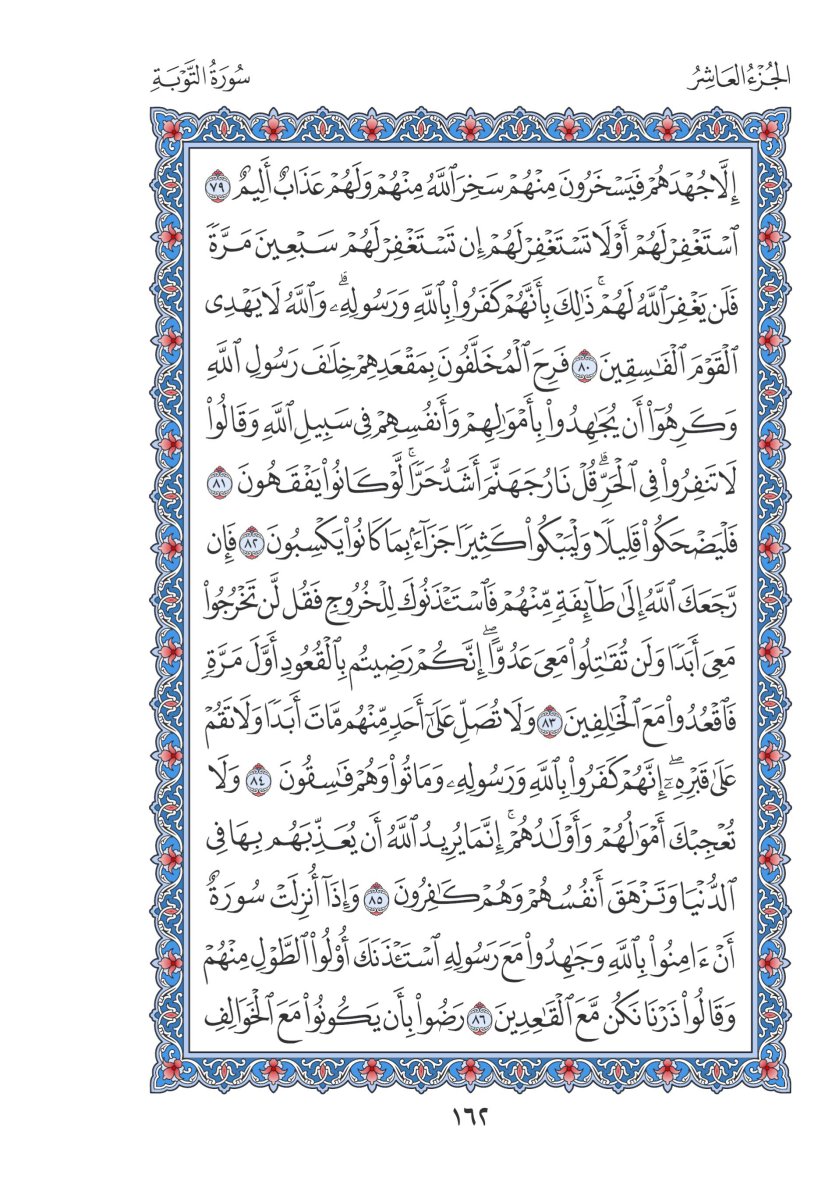 الجُزْءُ العَاشِرُ
سُورَةُ التَّوْبَةِ
إِلَّا جُهْدَهُمْ فَيَسْخَرُونَ مِنْهُمْ سَخِرَ ٱللَّهُ مِنْهُمْ وَلَهُمْ عَذَابٌ أَلِيمٌ ٧٩
ٱسْتَغْفِرْ لَهُمْ أَوْ لَا تَسْتَغْفِرْ لَهُمْ إِن تَسْتَغْفِرْ لَهُمْ سَبْعِينَ مَرَّةً
فَلَن يَغْفِرَ ٱللَّهُ لَهُمْۚ ذَٰلِكَ بِأَنَّهُمْ كَفَرُوا۟ بِٱللَّهِ وَرَسُولِهِۦۗ وَٱللَّهُ لَا يَهْدِى
ٱلْقَوْمَ ٱلْفَـٰسِقِينَ ٨٠ فَرِحَ ٱلْمُخَلَّفُونَ بِمَقْعَدِهِمْ خِلَـٰفَ رَسُولِ ٱللَّهِ
وَكَرِهُوٓا۟ أَن يُجَـٰهِدُوا۟ بِأَمْوَٰلِهِمْ وَأَنفُسِهِمْ فِى سَبِيلِ ٱللَّهِ وَقَالُوا۟
لَا تَنفِرُوا۟ فِى ٱلْحَرِّۗ قُلْ نَارُ جَهَنَّمَ أَشَدُّ حَرًّاۚ لَّوْ كَانُوا۟ يَفْقَهُونَ ٨١
فَلْيَضْحَكُوا۟ قَلِيلًا وَلْيَبْكُوا۟ كَثِيرًا جَزَآءًۢ بِمَا كَانُوا۟ يَكْسِبُونَ ٨٢ فَإِن
رَّجَعَكَ ٱللَّهُ إِلَىٰ طَآئِفَةٍ مِّنْهُمْ فَٱسْتَـْٔذَنُوكَ لِلْخُرُوجِ فَقُل لَّن تَخْرُجُوا۟
مَعِىَ أَبَدًا وَلَن تُقَـٰتِلُوا۟ مَعِىَ عَدُوًّاۖ إِنَّكُمْ رَضِيتُم بِٱلْقُعُودِ أَوَّلَ مَرَّةٍ
فَٱقْعُدُوا۟ مَعَ ٱلْخَـٰلِفِينَ ٨٣ وَلَا تُصَلِّ عَلَىٰٓ أَحَدٍ مِّنْهُم مَّاتَ أَبَدًا وَلَا تَقُمْ
عَلَىٰ قَبْرِهِۦٓۖ إِنَّهُمْ كَفَرُوا۟ بِٱللَّهِ وَرَسُولِهِۦ وَمَاتُوا۟ وَهُمْ فَـٰسِقُونَ ٨٤ وَلَا
تُعْجِبْكَ أَمْوَٰلُهُمْ وَأَوْلَـٰدُهُمْۚ إِنَّمَا يُرِيدُ ٱللَّهُ أَن يُعَذِّبَهُم بِهَا فِى
ٱلدُّنْيَا وَتَزْهَقَ أَنفُسُهُمْ وَهُمْ كَـٰفِرُونَ ٨٥ وَإِذَآ أُنزِلَتْ سُورَةٌ
أَنْ ءَامِنُوا۟ بِٱللَّهِ وَجَـٰهِدُوا۟ مَعَ رَسُولِهِ ٱسْتَـْٔذَنَكَ أُو۟لُوا۟ ٱلطَّوْلِ مِنْهُمْ
وَقَالُوا۟ ذَرْنَا نَكُن مَّعَ ٱلْقَـٰعِدِينَ ٨٦ رَضُوا۟ بِأَن يَكُونُوا۟ مَعَ ٱلْخَوَالِفِ
١٦٢